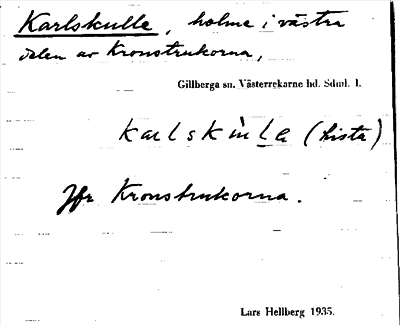 Karlskulle, holme i västra
delen av Kronstrukorna,
Gillberga sn. Västerrekarne hd. Sdml. l.
(lista)
Jfr Kronstrukorna.
Lars Hellberg 1935.